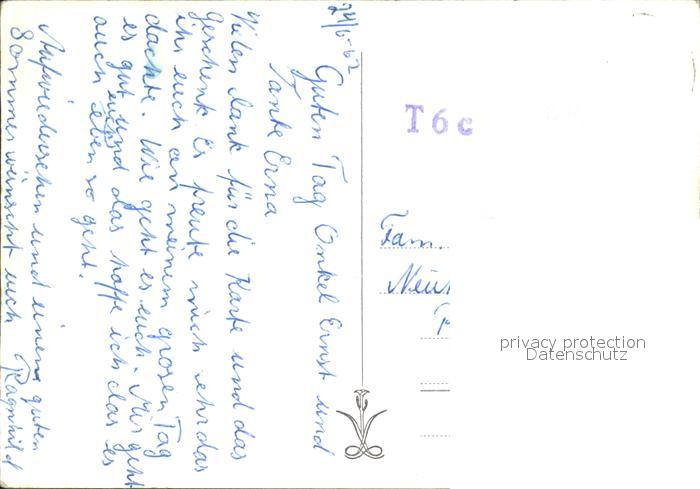 24/6-62
Guten Tag Onkel Ernst und
Tante Erna
Vielen Dank für die Karte und das
geschenk Es freute mich das
ihr euch an meinem grosen Tag
dachte. Wie geht es euch. Mir geht
es gut und das hoffe ich das es
auch eben so geht.
Aufwiedersehen und einem guten
Sommer wünscht euch Ragnhild
T6c
Fam.
privacy protection
Datenschutz